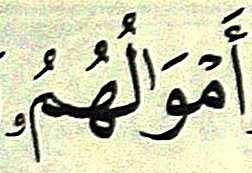 أَمْوَٰلُهُمُۥ